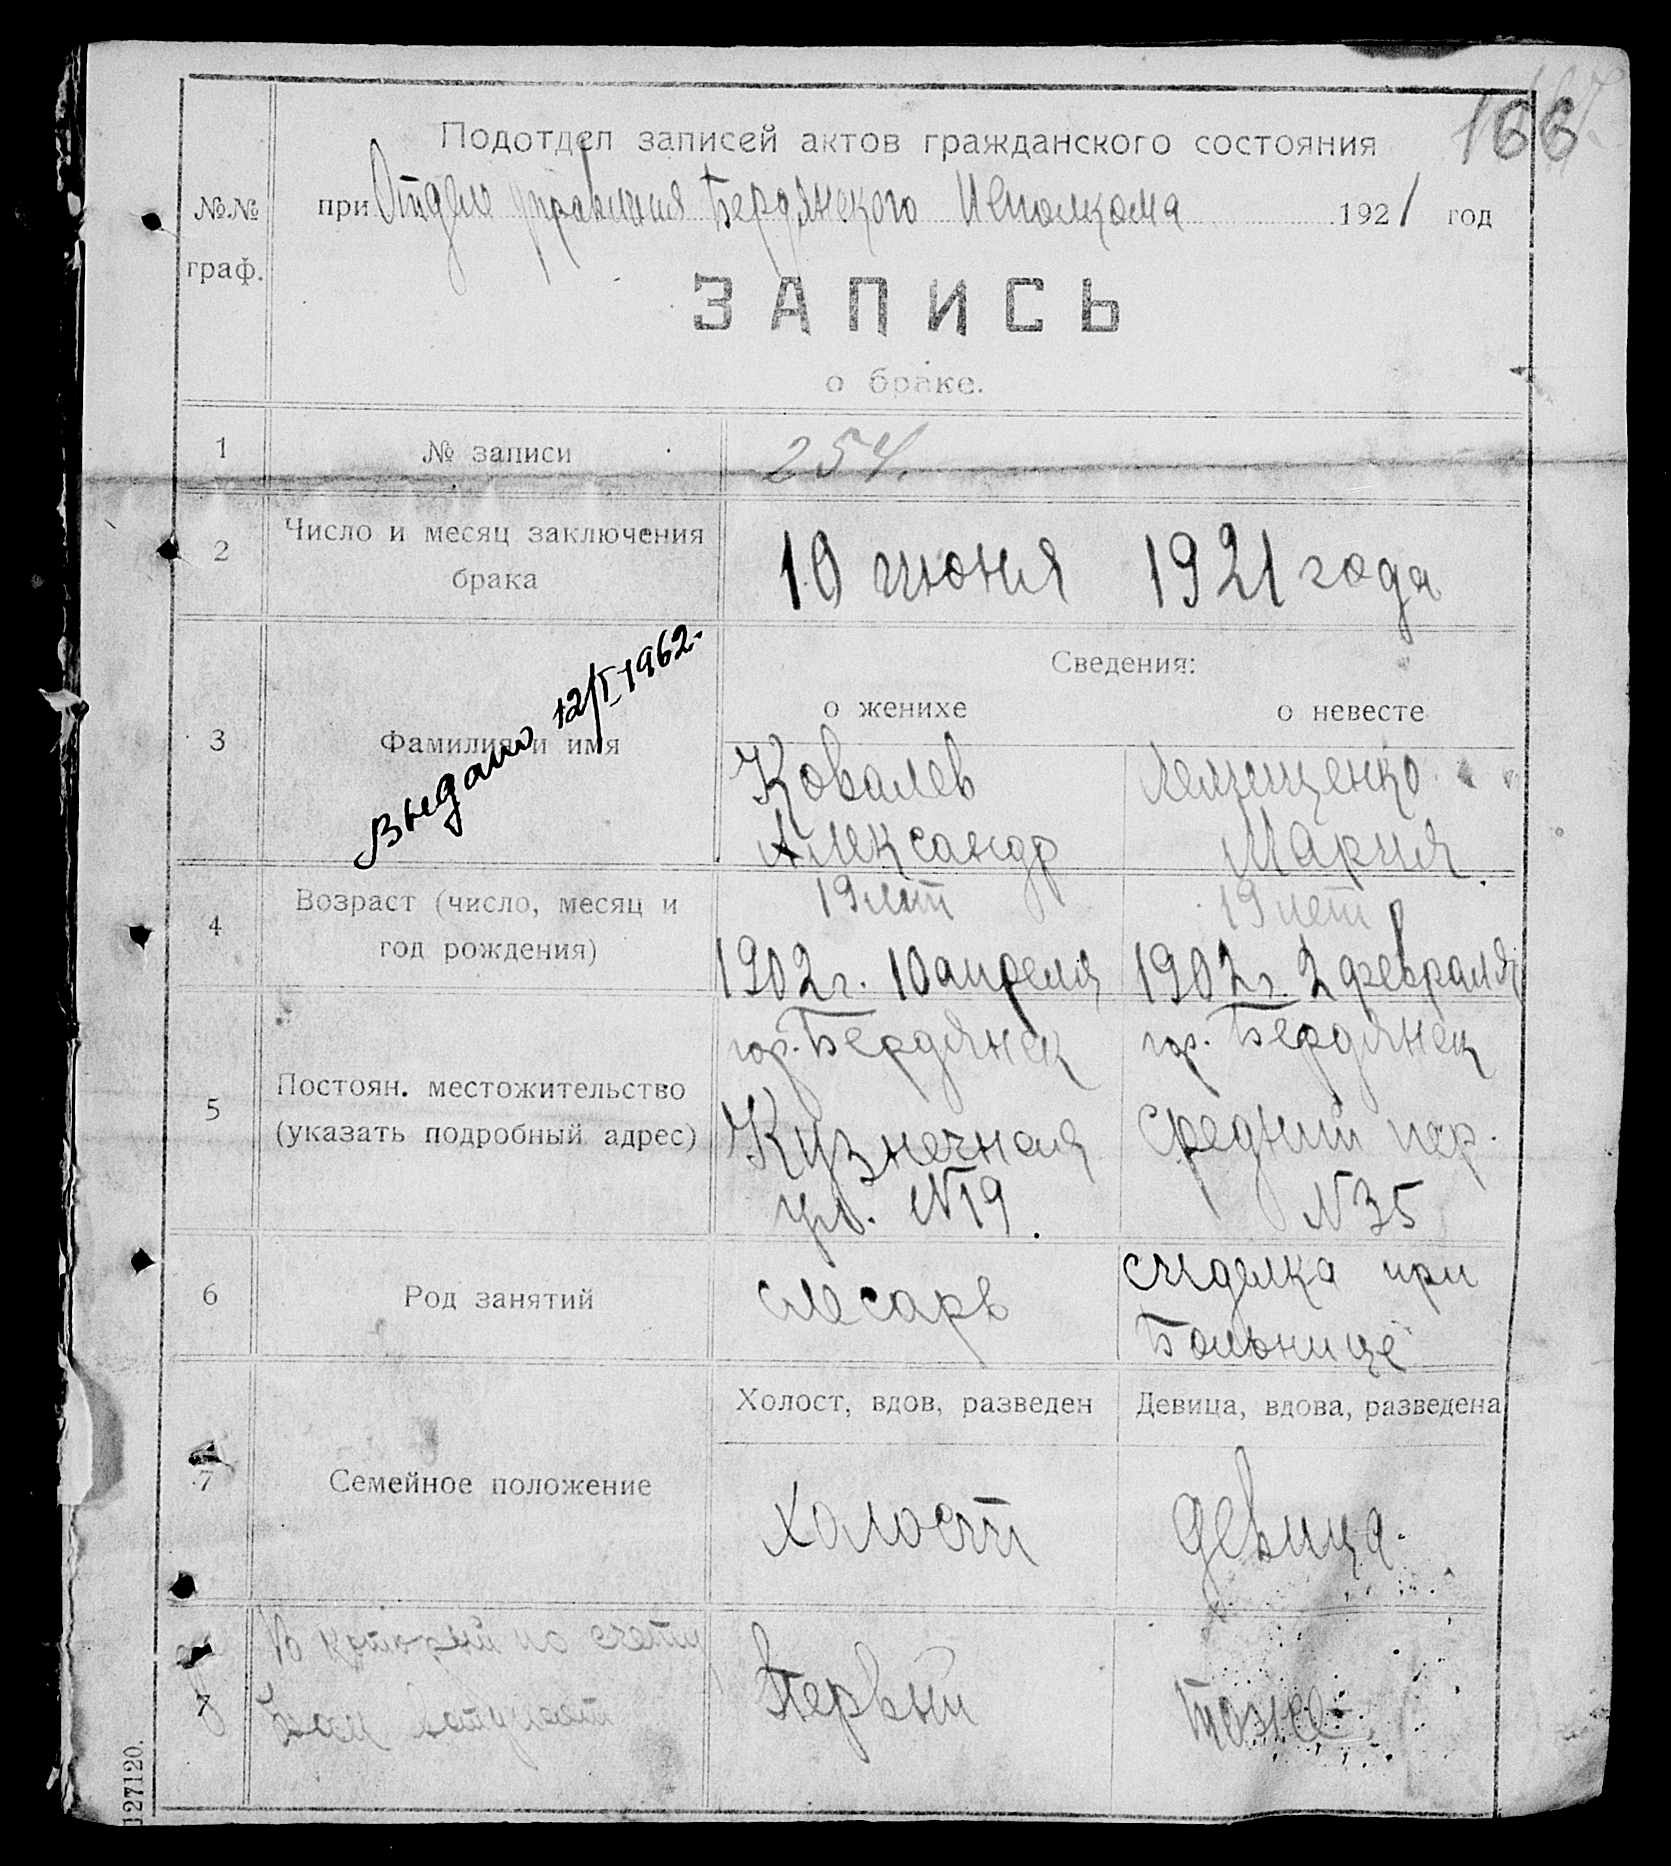 166
Подотдел записей актов гражданского состояния
№№ граф.
при Отделе управления Бердянского Исполкома 1921 год
ЗАПИСЬ
о браке.
1 № записи 254.
2 Число и месяц заключения
брака
10 июня 1921 года
Выдано 12/I-1962.
Сведения:
о женихе о невесте
3 Фамилия и имя
Ковалев Лемищенко
Александр Мария
4 Возраст (число, месяц и
год рождения)
19 лет 19 лет
1902 г. 10 апреля 1902 г. 2 февраля
5 Постоян. местожительство
(указать подробный адрес)
гор. Бердянск гор. Бердянск
Кузнечная Средний пер.
ул. №19. №35
6 Род занятий
слесарь сиделка при
Больнице
Холост, вдов, разведен Девица, вдова, разведена
7 Семейное положение
холост девица.
В который по счету
брак вступает
Первый тоже
127120.